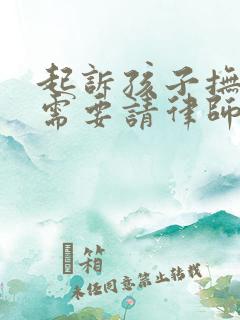 起訴孩子撫
需要請律師
箱
未經同意禁止转载